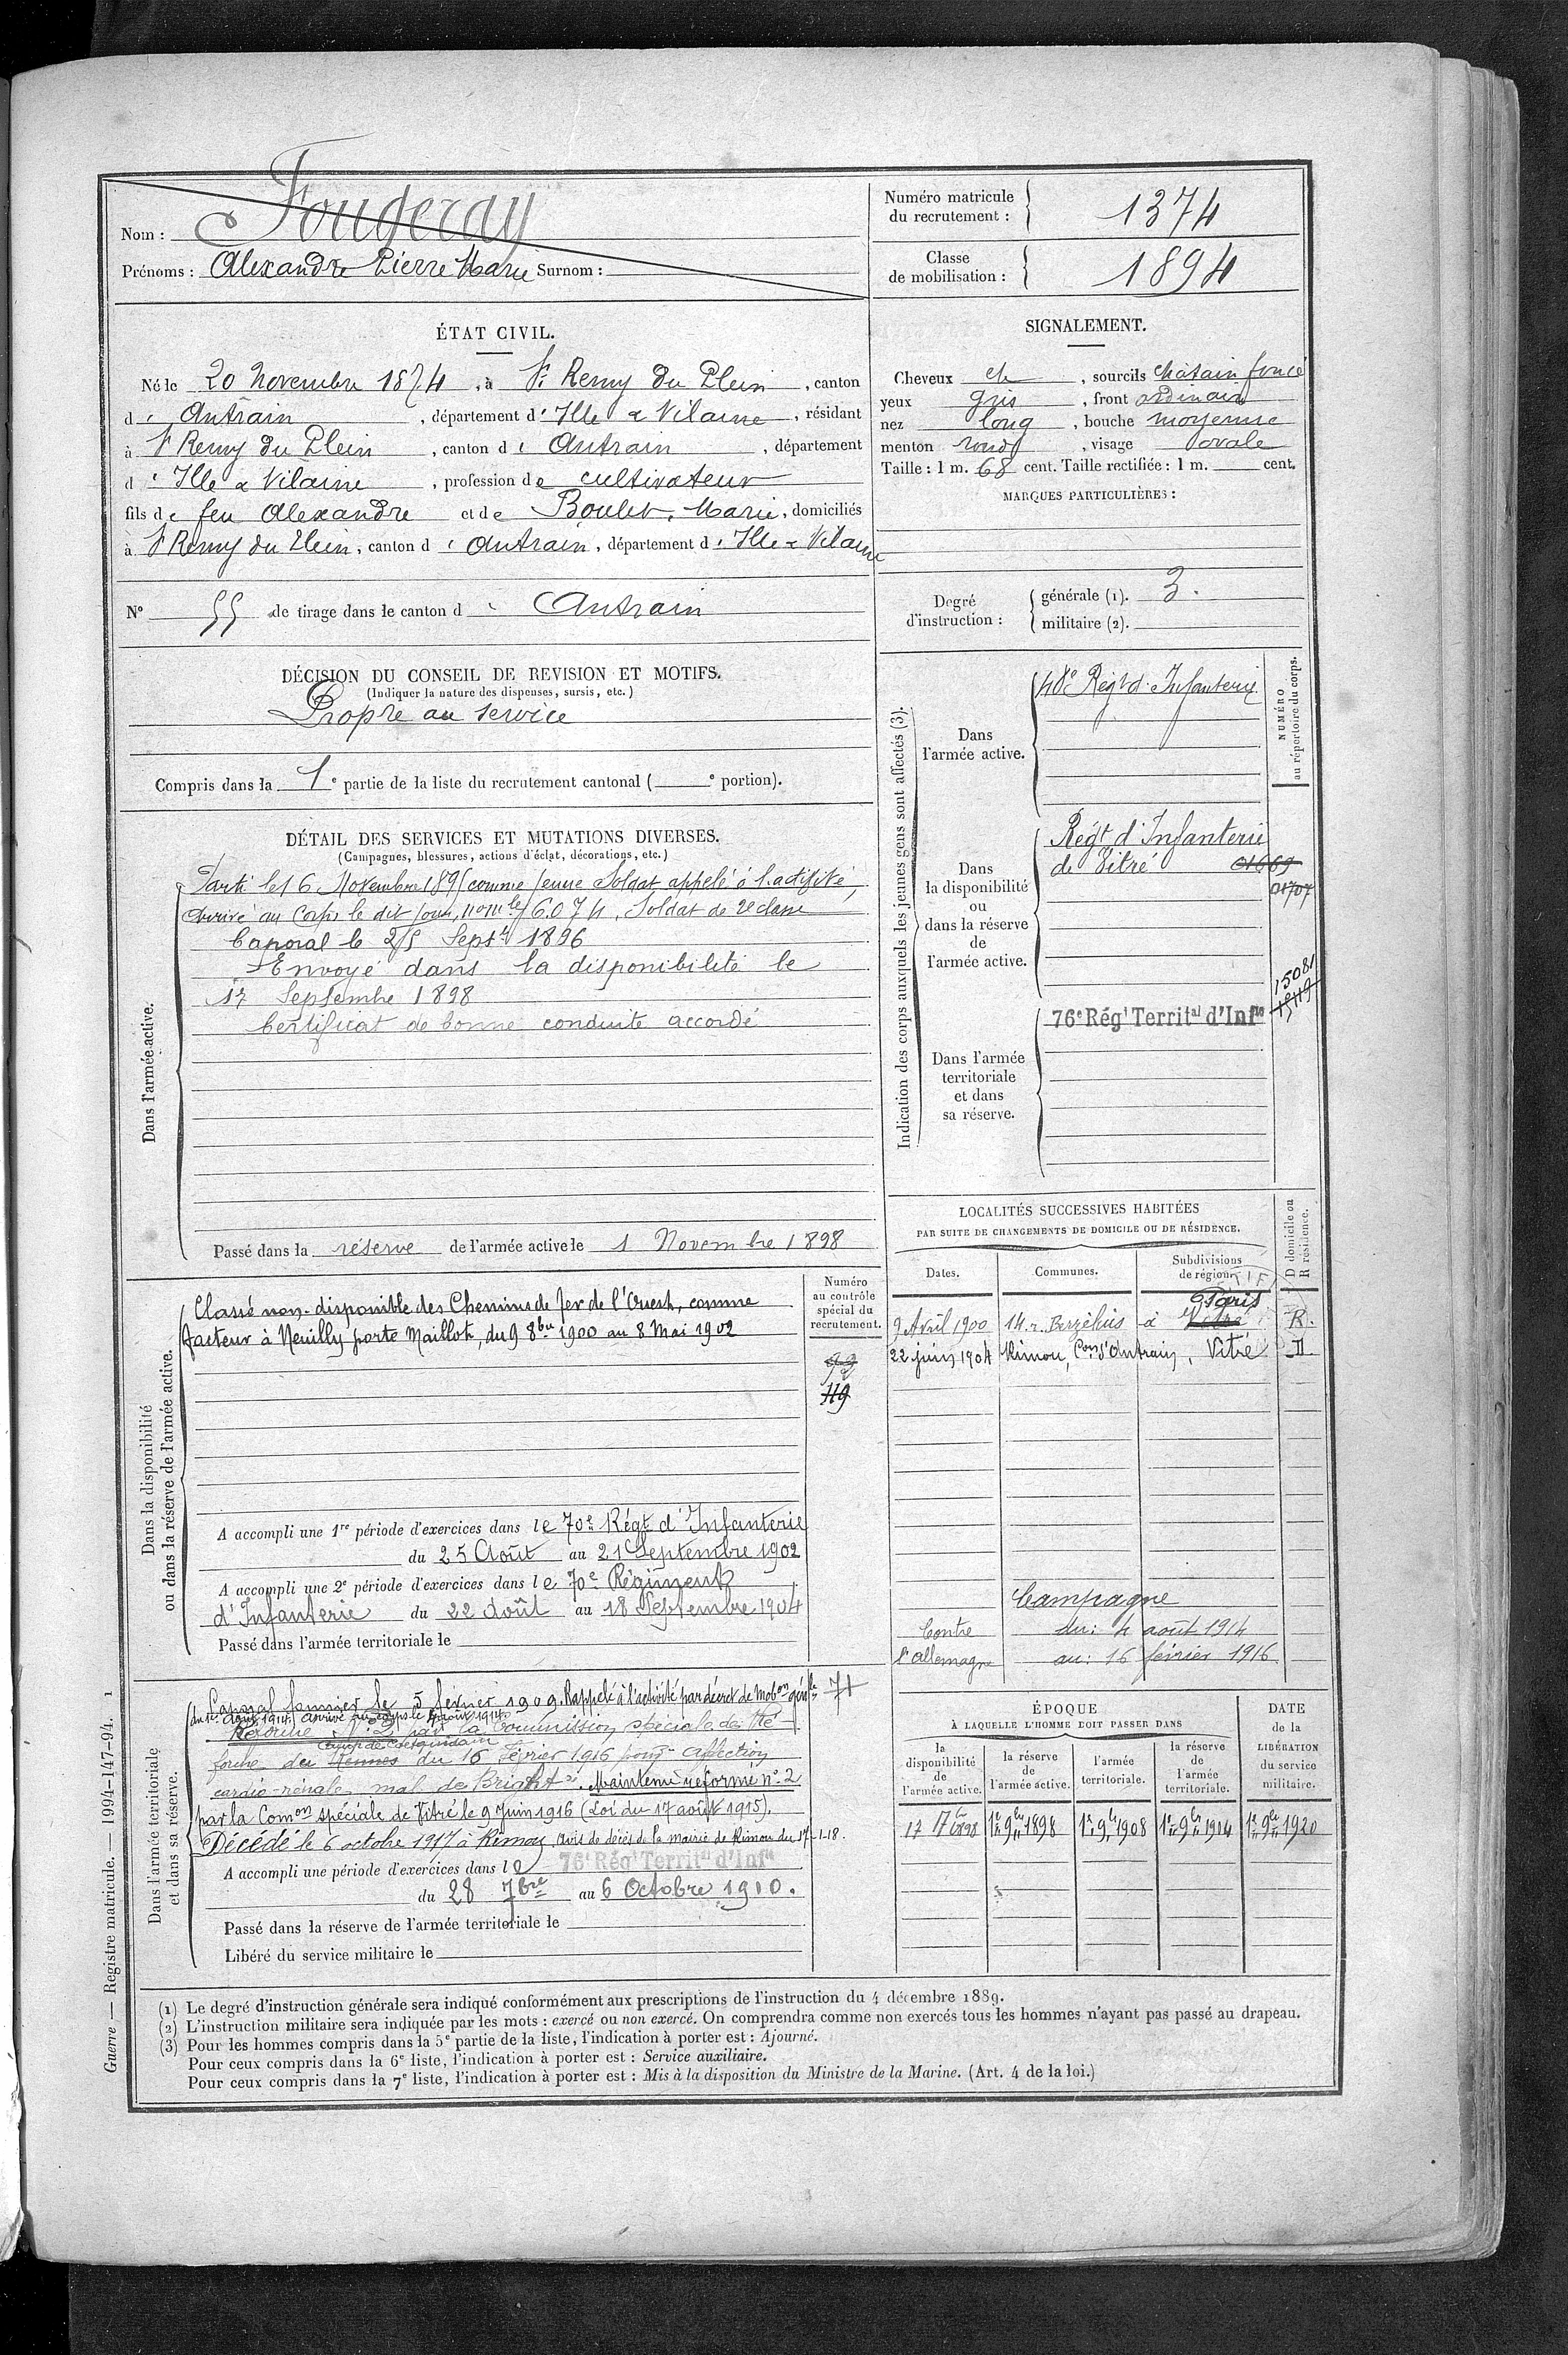 Nom : Fougeray
Prénoms : Alexandre Pierre Marie Surnom :
Numéro matricule du recrutement : 1374
Classe de mobilisation : 1894
ÉTAT CIVIL.
Né le 20 Novembre 1874, à St Remy du Plein, canton
d' Antrain, département d' Ille & Vilaine, résidant
à St Remy du Plein, canton d' Antrain, département
d' Ille & Vilaine, profession de cultivateur
fils de feu Alexandre et de Boulet, Marie, domiciliés
à St Remy du Plein, canton d' Antrain, département d' Ille & Vilaine
N° 55 de tirage dans le canton d' Antrain
SIGNALEMENT.
Cheveux et, sourcils chatain foncé
yeux gris, front ordinaire
nez long, bouche moyenne
menton rond, visage ovale
Taille : 1 m. 68 cent. Taille rectifiée : 1 m. cent.
MARQUES PARTICULIÈRES :
Degré d'instruction : générale (1). 3.
militaire (2).
DÉCISION DU CONSEIL DE REVISION ET MOTIFS.
(Indiquer la nature des dispenses, sursis, etc.)
Propre au service
Compris dans la 1e partie de la liste du recrutement cantonal ( e portion).
DÉTAIL DES SERVICES ET MUTATIONS DIVERSES.
(Campagnes, blessures, actions d'éclat, décorations, etc.)
Dans l'armée active.
Parti le 16 Novembre 1895 comme jeune Soldat appelé à l'activité,
Arrivé au Corps le dit jour, nom le 6.074. Soldat de 2e classe
Caporal le 25 Septbre 1896
Envoyé dans la disponibilité le
17 Septembre 1898
Certificat de bonne conduite accordé
Passé dans la réserve de l'armée active le 1 Novembre 1898
Indication des corps auxquels les jeunes gens sont affectés (3).
NUMÉRO au répertoire du corps.
Dans l'armée active.
Régt d'Infanterie
Dans la disponibilité ou dans la réserve de l'armée active.
Régt d'Infanterie
de Vitré 01669
01707
15081
Dans l'armée territoriale et dans sa réserve.
76e Régt Territal d'Infie
LOCALITÉS SUCCESSIVES HABITÉES
PAR SUITE DE CHANGEMENTS DE DOMICILE OU DE RÉSIDENCE.
Dates. Communes. Subdivisions de région. D domicile ou R résidence.
9 Avril 1900 14. r. Berzélius à Paris Vitré R.
22 juin 1904 Rimou, Con d'Antrain, Vitré D
Campagne
Contre l'allemagne
du : 4 août 1914
au : 16 février 1916
Dans la disponibilité ou dans la réserve de l'armée active.
Numéro au contrôle spécial du recrutement.
Classé non-disponible des Chemins de fer de l'Ouest, comme
facteur à Neuilly porte Maillot, du 9 8bre 1900 au 8 Mai 1902
119
A accompli une 1re période d'exercices dans le 70e Régt d'Infanterie
du 25 Août au 21 Septembre 1902
A accompli une 2e période d'exercices dans le 70e Régiment
d'Infanterie du 22 Août au 18 Septembre 1904
Passé dans l'armée territoriale le
Dans l'armée territoriale et dans sa réserve.
Caporal fourrier le 5 février 1909. Rappelé à l'activité par décret de Mobon génle 71
du 1er Août 1914. Arrivé au corps le 4 août 1914
Réformé N° 2 par la Commission spéciale de Ré-
camp de Coëtquidan
forme de Rennes du 16 Février 1916 pour affection
cardio-rénale, mal de Bright. Maintenu réformé n° 2
par la Comon spéciale de Vitré le 9 Juin 1916 (Loi du 17 août 1915).
Décédé le 6 octobre 1917 à Rimou Avis de décès de la mairie de Rimou du 17-1-18.
A accompli une période d'exercices dans le 76e Régt Territal d'Infie
du 28 7bre au 6 Octobre 1910.
Passé dans la réserve de l'armée territoriale le
Libéré du service militaire le
ÉPOQUE
À LAQUELLE L'HOMME DOIT PASSER DANS
la disponibilité de l'armée active. la réserve de l'armée active. l'armée territoriale. la réserve de l'armée territoriale.
DATE de la LIBÉRATION du service militaire.
17 7bre 98 1er 9bre 1898 1er 9bre 1908 1er 9bre 1914 1er 9bre 1920
(1) Le degré d'instruction générale sera indiqué conformément aux prescriptions de l'instruction du 4 décembre 1889.
(2) L'instruction militaire sera indiquée par les mots : exercé ou non exercé. On comprendra comme non exercés tous les hommes n'ayant pas passé au drapeau.
(3) Pour les hommes compris dans la 5e partie de la liste, l'indication à porter est : Ajourné.
Pour ceux compris dans la 6e liste, l'indication à porter est : Service auxiliaire.
Pour ceux compris dans la 7e liste, l'indication à porter est : Mis à la disposition du Ministre de la Marine. (Art. 4 de la loi.)
Guerre — Registre matricule. — 1994-147-94. 1